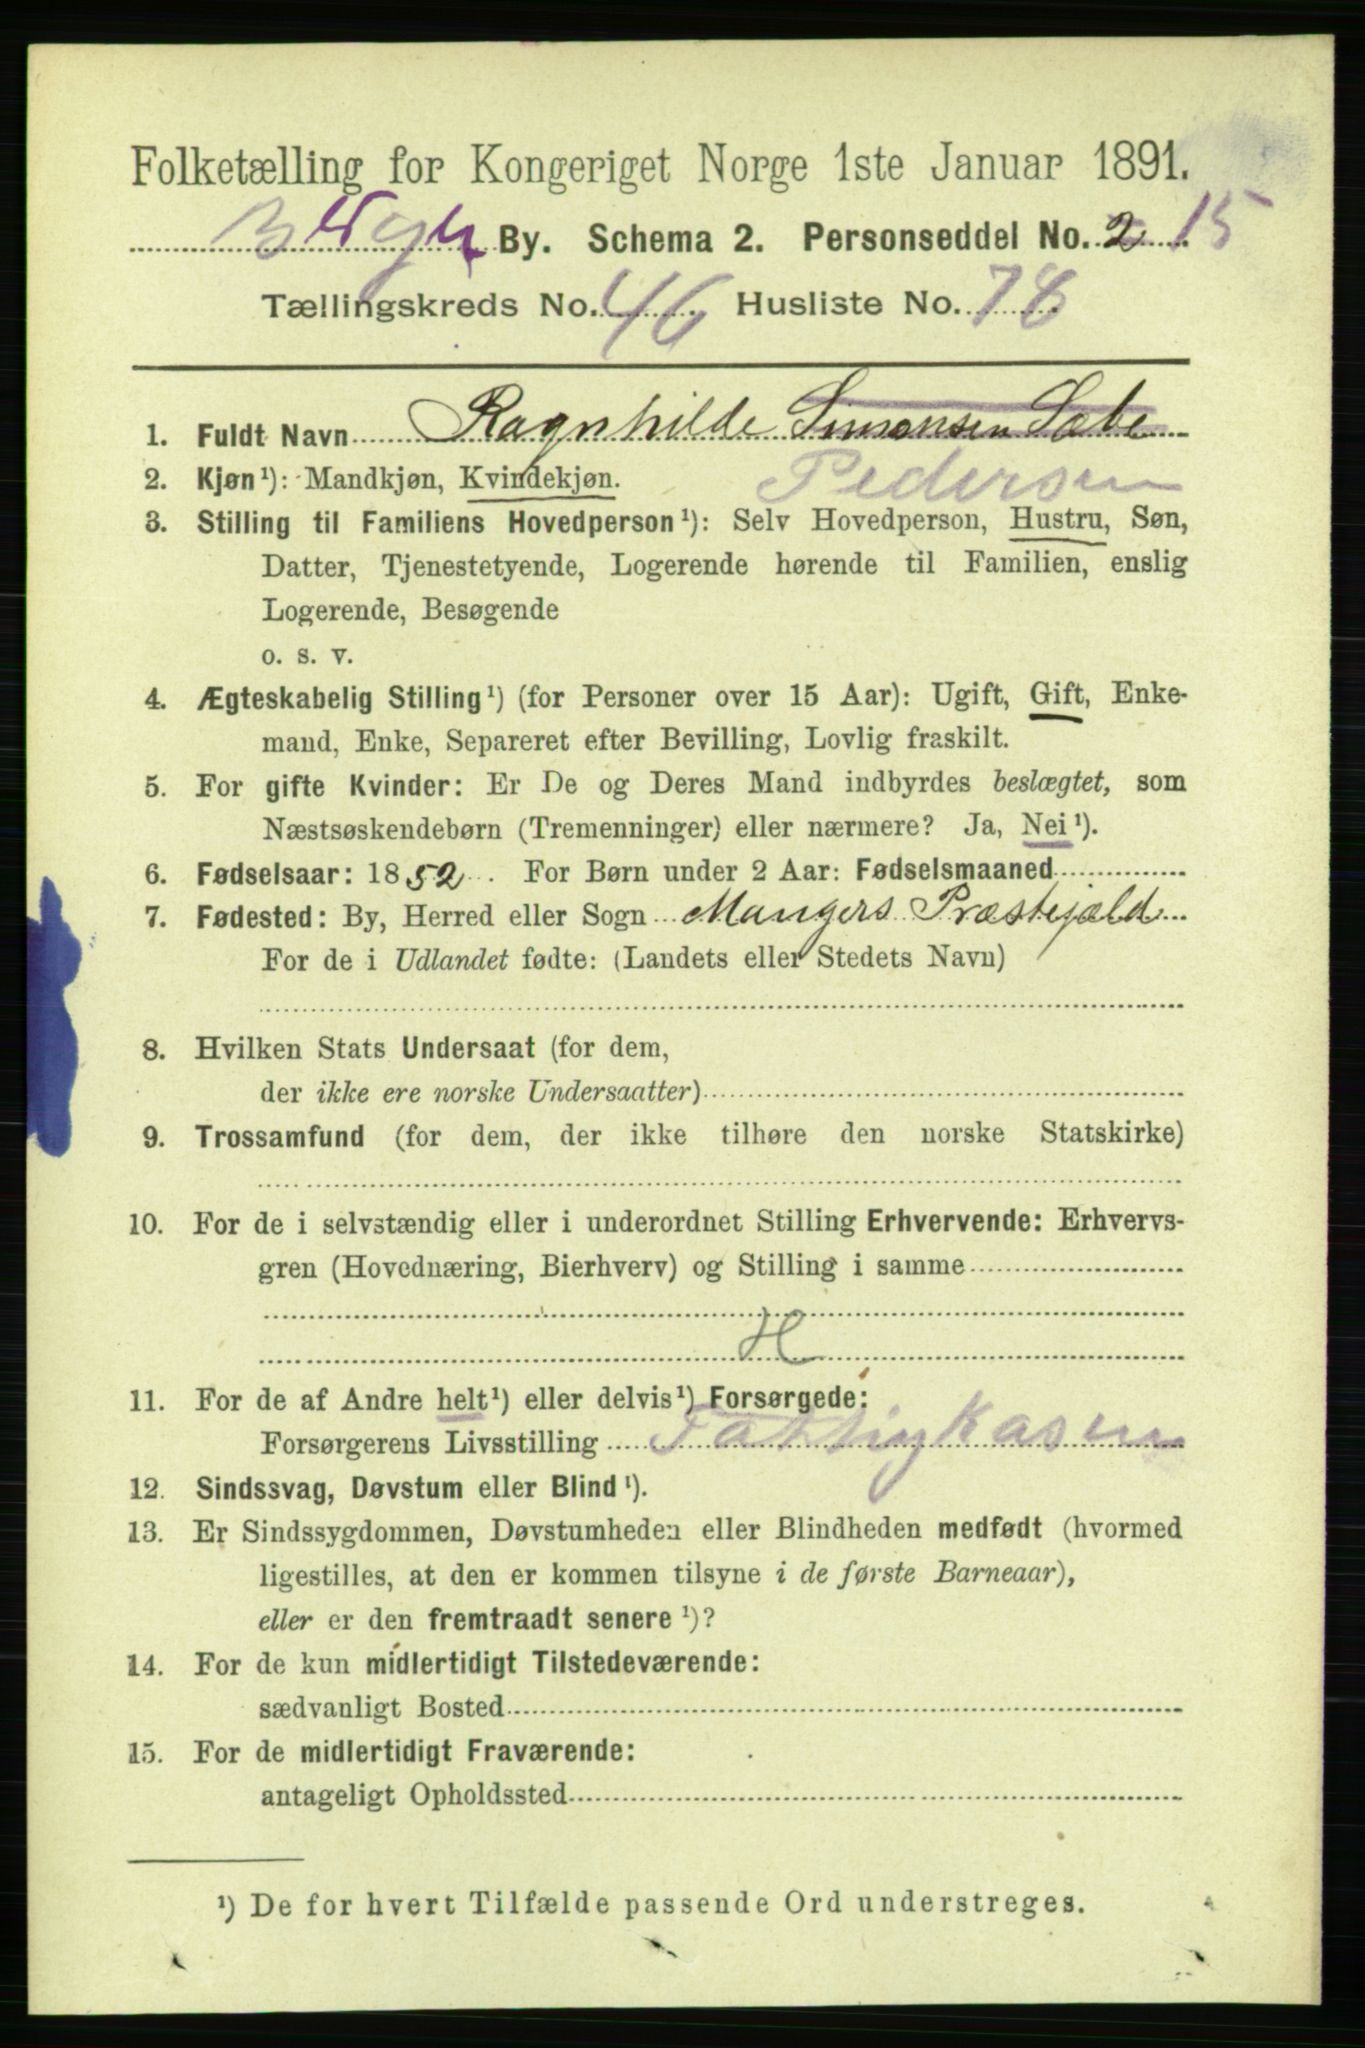 Folketælling for Kongeriget Norge 1ste Januar 1891.
Bergen By. Schema 2. Personseddel No. 2 15
Tællingskreds No. 46 Husliste No. 78
1. Fuldt Navn Ragnhilde Simonsen Sæbe
2. Kjøn¹): Mandkjøn, Kvindekjøn. Pedersen
3. Stilling til Familiens Hovedperson¹): Selv Hovedperson, Hustru, Søn,
Datter, Tjenestetyende, Logerende hørende til Familien, enslig
Logerende, Besøgende
o. s. v.
4. Ægteskabelig Stilling¹) (for Personer over 15 Aar): Ugift, Gift, Enke-
mand, Enke, Separeret efter Bevilling, Lovlig fraskilt.
5. For gifte Kvinder: Er De og Deres Mand indbyrdes beslægtet, som
Næstsøskendebørn (Tremenninger) eller nærmere? Ja, Nei¹).
6. Fødselsaar: 1852. For Børn under 2 Aar: Fødselsmaaned
7. Fødested: By, Herred eller Sogn Mangers Præstejæld
For de i Udlandet fødte: (Landets eller Stedets Navn)
8. Hvilken Stats Undersaat (for dem,
der ikke ere norske Undersaatter)
9. Trossamfund (for dem, der ikke tilhøre den norske Statskirke)
10. For de i selvstændig eller i underordnet Stilling Erhvervende: Erhvervs-
gren (Hovednæring, Bierhverv) og Stilling i samme
H
11. For de af Andre helt¹) eller delvis¹) Forsørgede:
Forsørgerens Livsstilling Fattigkasen
12. Sindssvag, Døvstum eller Blind¹).
13. Er Sindssygdommen, Døvstumheden eller Blindheden medfødt (hvormed
ligestilles, at den er kommen tilsyne i de første Barneaar),
eller er den fremtraadt senere¹)?
14. For de kun midlertidigt Tilstedeværende:
sædvanligt Bosted
15. For de midlertidigt Fraværende:
antageligt Opholdssted
¹) De for hvert Tilfælde passende Ord understreges.